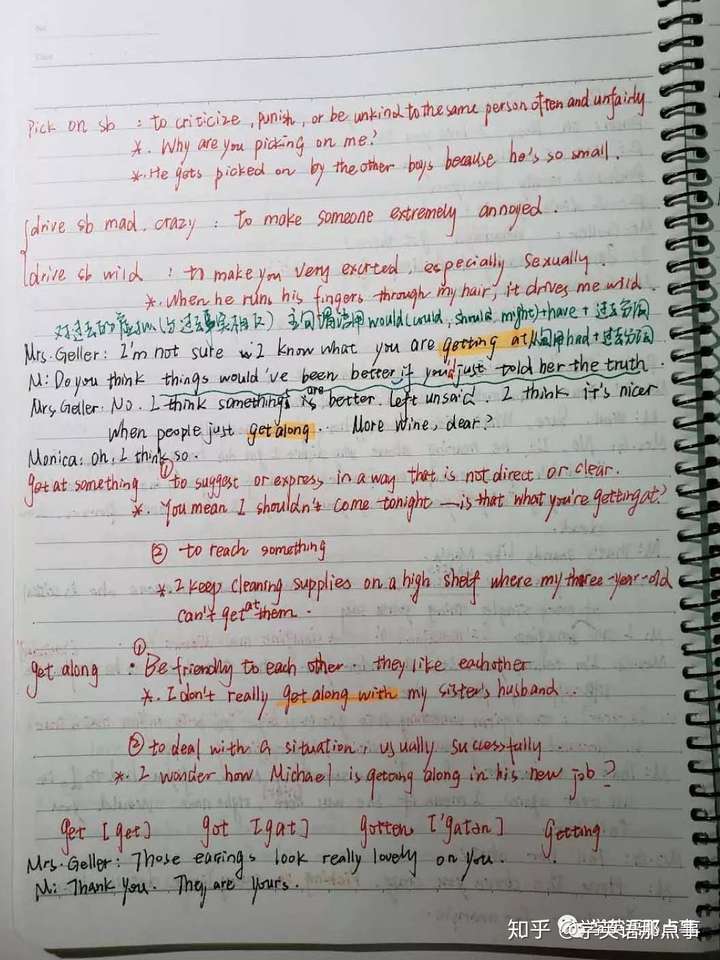 Pick on sb : to criticize, punish, or be unkind to the same person often and unfairly
*. Why are you picking on me?
*. He gets picked on by the other boys because he's so small.
drive sb mad, crazy : to make someone extremely annoyed.
drive sb wild : to make you very excited, especially sexually.
*. When he runs his fingers through my hair, it drives me wild.
对过去的虚拟(与过去事实相反) 主句谓语用would(could, should might)+have+过去分词
Mrs. Geller: I'm not sure I know what you are getting at 从句用had+过去分词
M: Do you think things would've been better if you'd just told her the truth
are
Mrs. Geller: No. I think somethings is better left unsaid. I think it's nicer
when people just get along. More wine, dear?
Monica: oh, I think so.
got at something ① to suggest or express in a way that is not direct or clear.
*. You mean I shouldn't come tonight — is that what you're getting at?
② to reach something
*. I keep cleaning supplies on a high shelf where my three-year-old
can't get at them.
get along : ① Be friendly to each other. they like eachother
*. I don't really get along with my sister's husband.
② to deal with a situation, usually successfully.
*. I wonder how Michael is getang along in his new job?
get [get] got [gat] gotten ['gatən] Getting
Mrs. Geller: Those earings look really lovely on you.
M: Thank you. They are yours.
知乎 @学英语那点事
学英语那点事